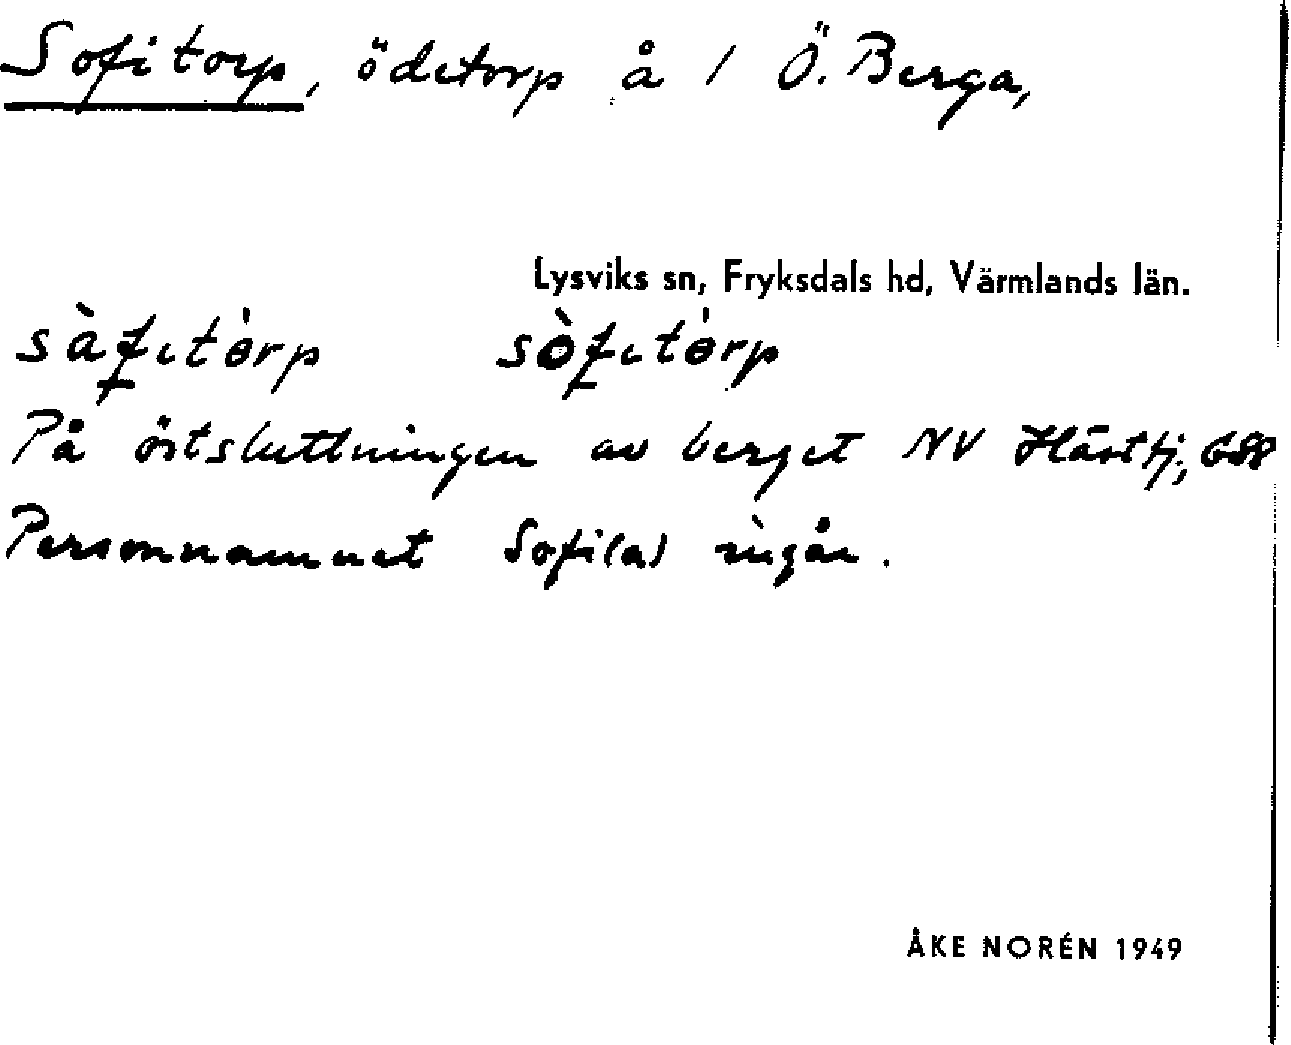 Sofitorp, ödetorp å 1 Ö. Berga,
Lysviks sn, Fryksdals hd, Värmlands län.
sàfitórp sòfitórp
På östsluttningen av berget NV Hästtj,
Personnamnet Sofi(a) ingår.
ÅKE NORÉN 1949